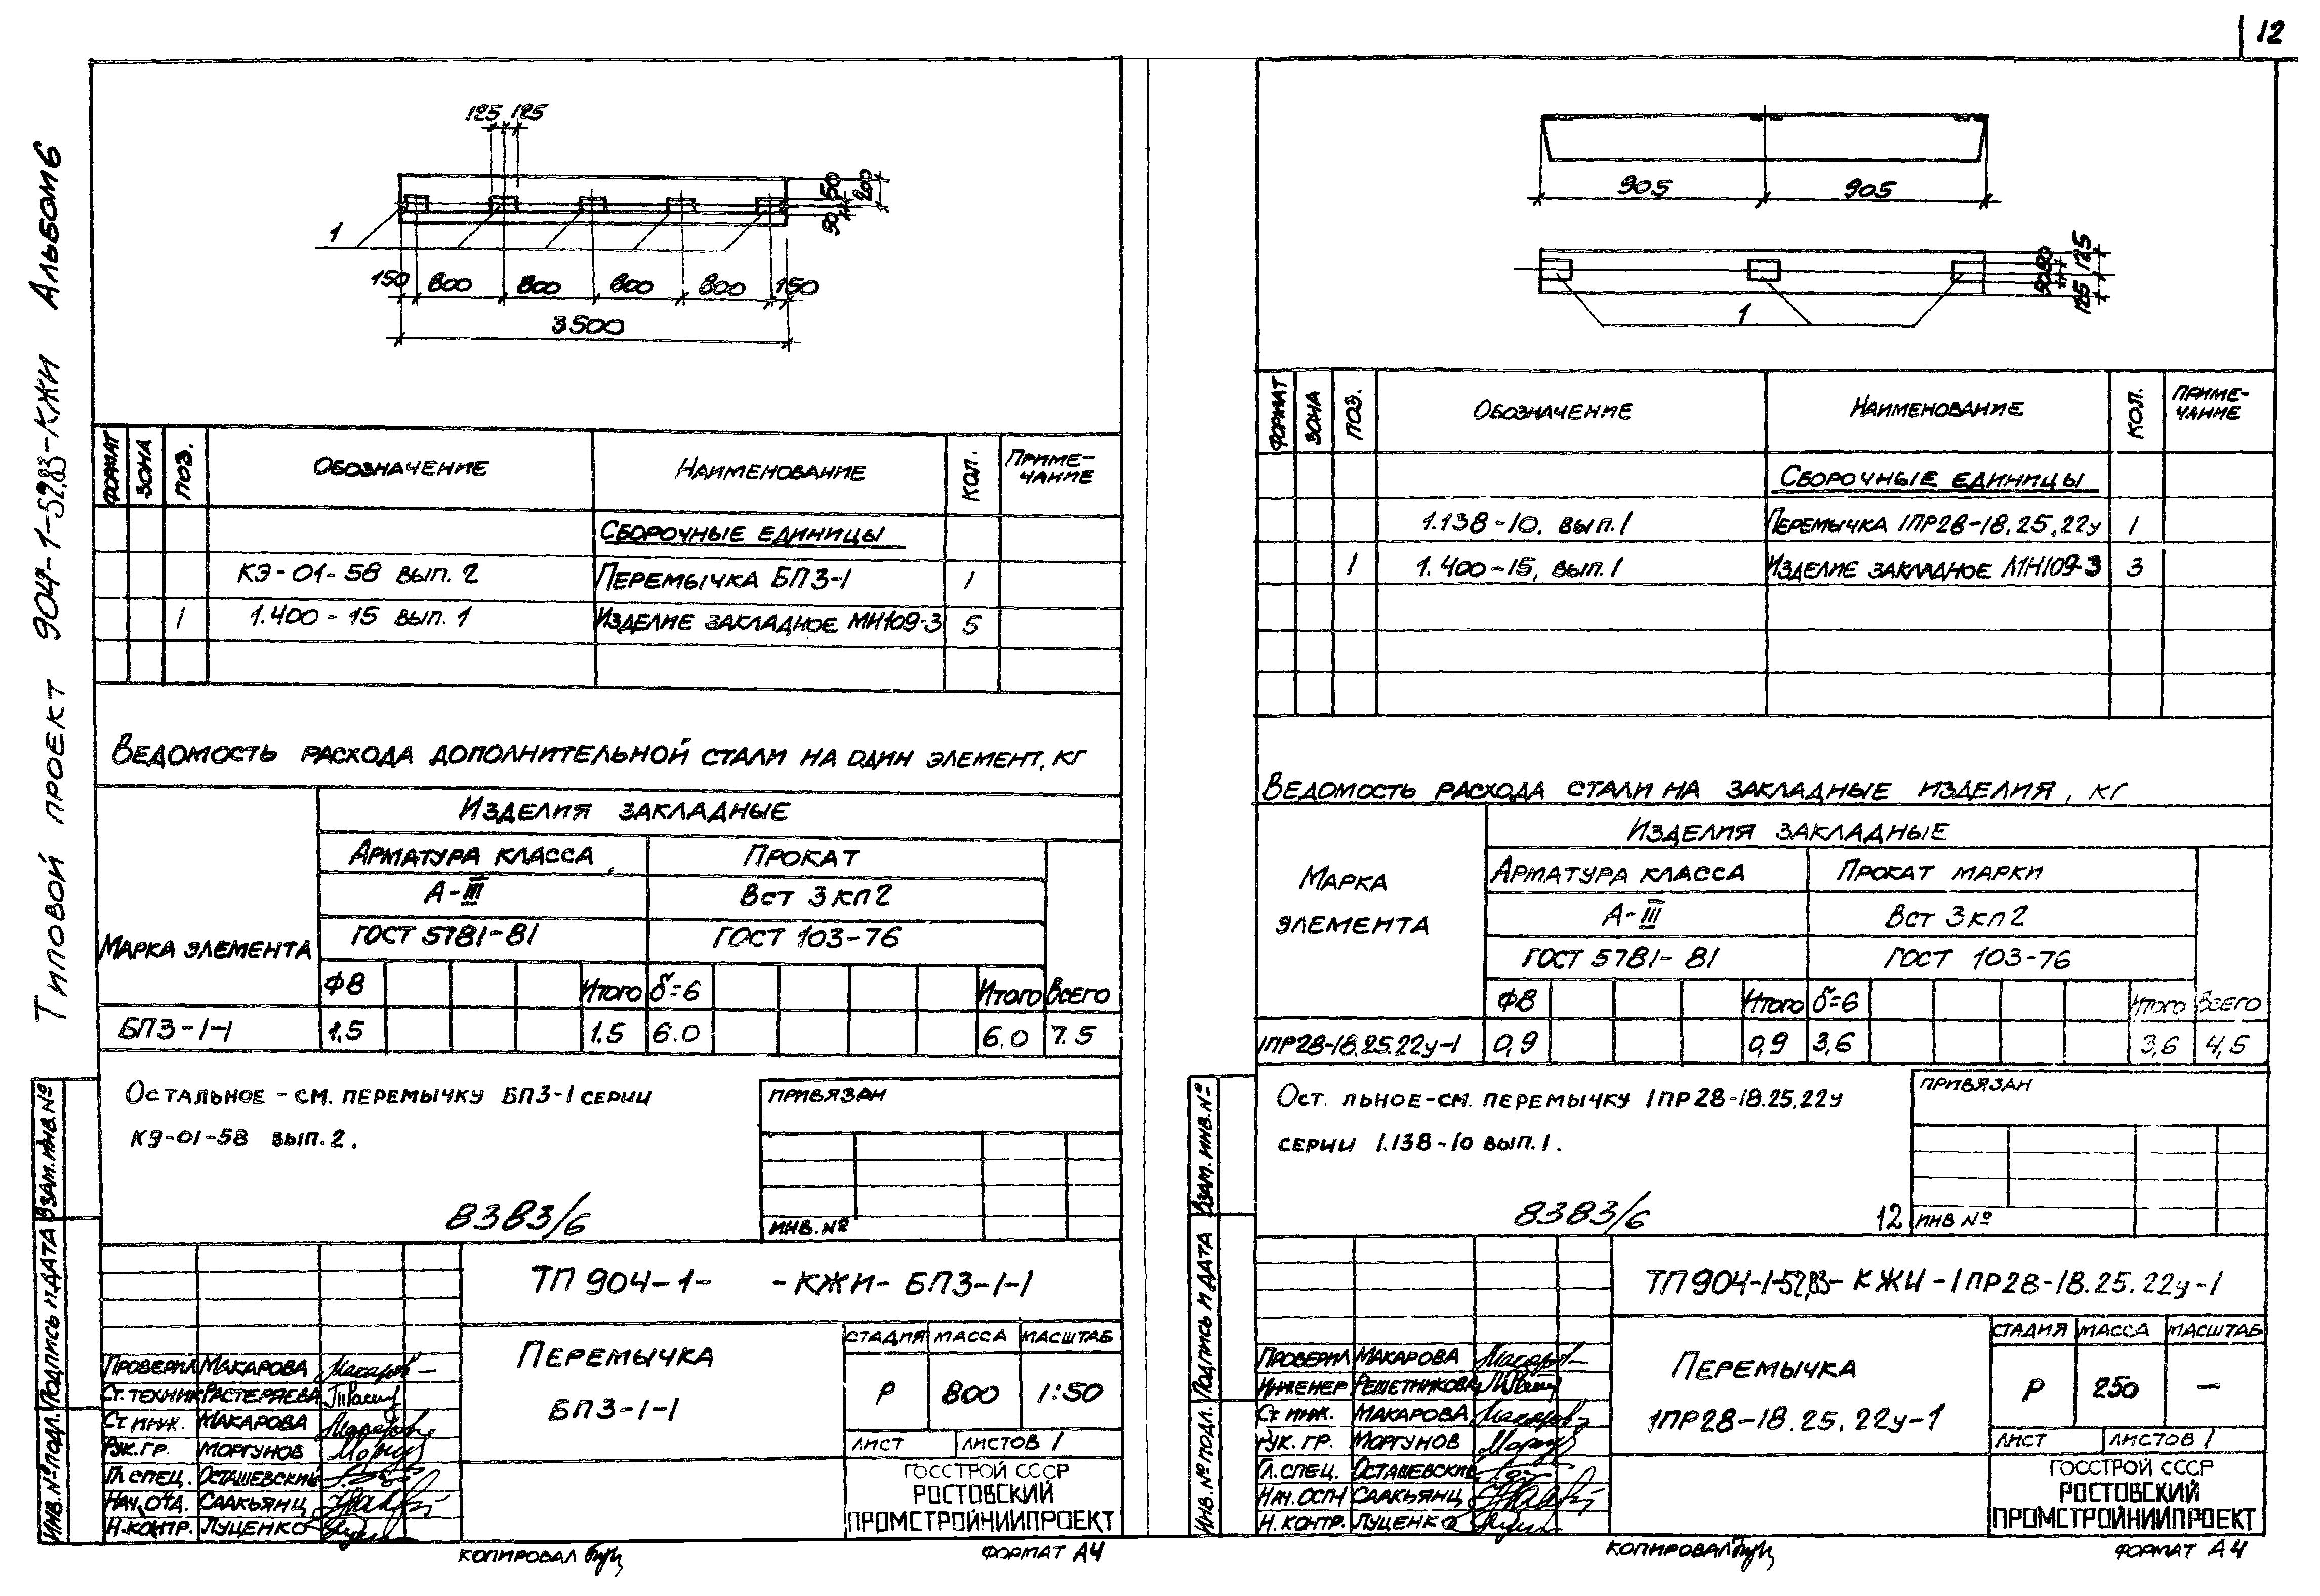 12
Типовой проект 904-1-52.83-КЖИ Альбом 6
125 125
50
200
50
1
150 800 800 800 800 150
3500
Формат Зона Поз. Обозначение Наименование Кол. Приме-
чание
Сборочные единицы
КЭ-01-58 вып. 2 Перемычка БП3-1 1
1 1.400-15 вып. 1 Изделие закладное МН109-3 5
Ведомость расхода дополнительной стали на один элемент, кг
Марка элемента
Изделия закладные
Арматура класса Прокат
А-III Вст 3кп2
ГОСТ 5781-81 ГОСТ 103-76
Ф8 Итого б=6 Итого Всего
БП3-1-1 1,5 1,5 6.0 6.0 7.5
Остальное - см. перемычку БП3-1 серии
КЭ-01-58 вып. 2.
Привязан
Инв. №
8383/6
ТП 904-1- -КЖИ-БП3-1-1
Перемычка
БП3-1-1
Стадия Масса Масштаб
Р 800 1:50
Лист Листов 1
Госстрой СССР
Ростовский
Промстройниипроект
Проверил Макарова
Ст. техник Растеряева
Ст. инж. Макарова
Рук. гр. Моргунов
Гл. спец. Осташевский
Нач. отд. Саакьянц
Н. контр. Луценко
Инв. № подл. Подпись и дата Взам. инв. №
Копировал Формат А4
905 905
50 50
125
125
1
Формат Зона Поз. Обозначение Наименование Кол. Приме-
чание
Сборочные единицы
1.138-10, вып. 1 Перемычка 1ПР28-18.25.22у 1
1 1.400-15, вып. 1 Изделие закладное МН109-3 3
Ведомость расхода стали на закладные изделия, кг
Марка
элемента
Изделия закладные
Арматура класса Прокат марки
А-III Вст 3кп2
ГОСТ 5781-81 ГОСТ 103-76
Ф8 Итого б=6 Итого Всего
1ПР28-18.25.22у-1 0,9 0,9 3,6 3,6 4,5
Ост льное-см. перемычку 1ПР28-18.25.22у
серии 1.138-10 вып. 1.
Привязан
Инв №
8383/6 12
ТП904-1-52.83-КЖИ-1ПР28-18.25.22у-1
Перемычка
1ПР28-18.25.22у-1
Стадия Масса Масштаб
Р 250 —
Лист Листов 1
Госстрой СССР
Ростовский
Промстройниипроект
Проверил Макарова
Инженер Решетникова
Ст инж. Макарова
Рук. гр. Моргунов
Гл. спец. Осташевский
Нач. ОСП-1 Саакьянц
Н. контр. Луценко
Инв. № подл. Подпись и дата Взам. инв. №
Копировал Формат А4